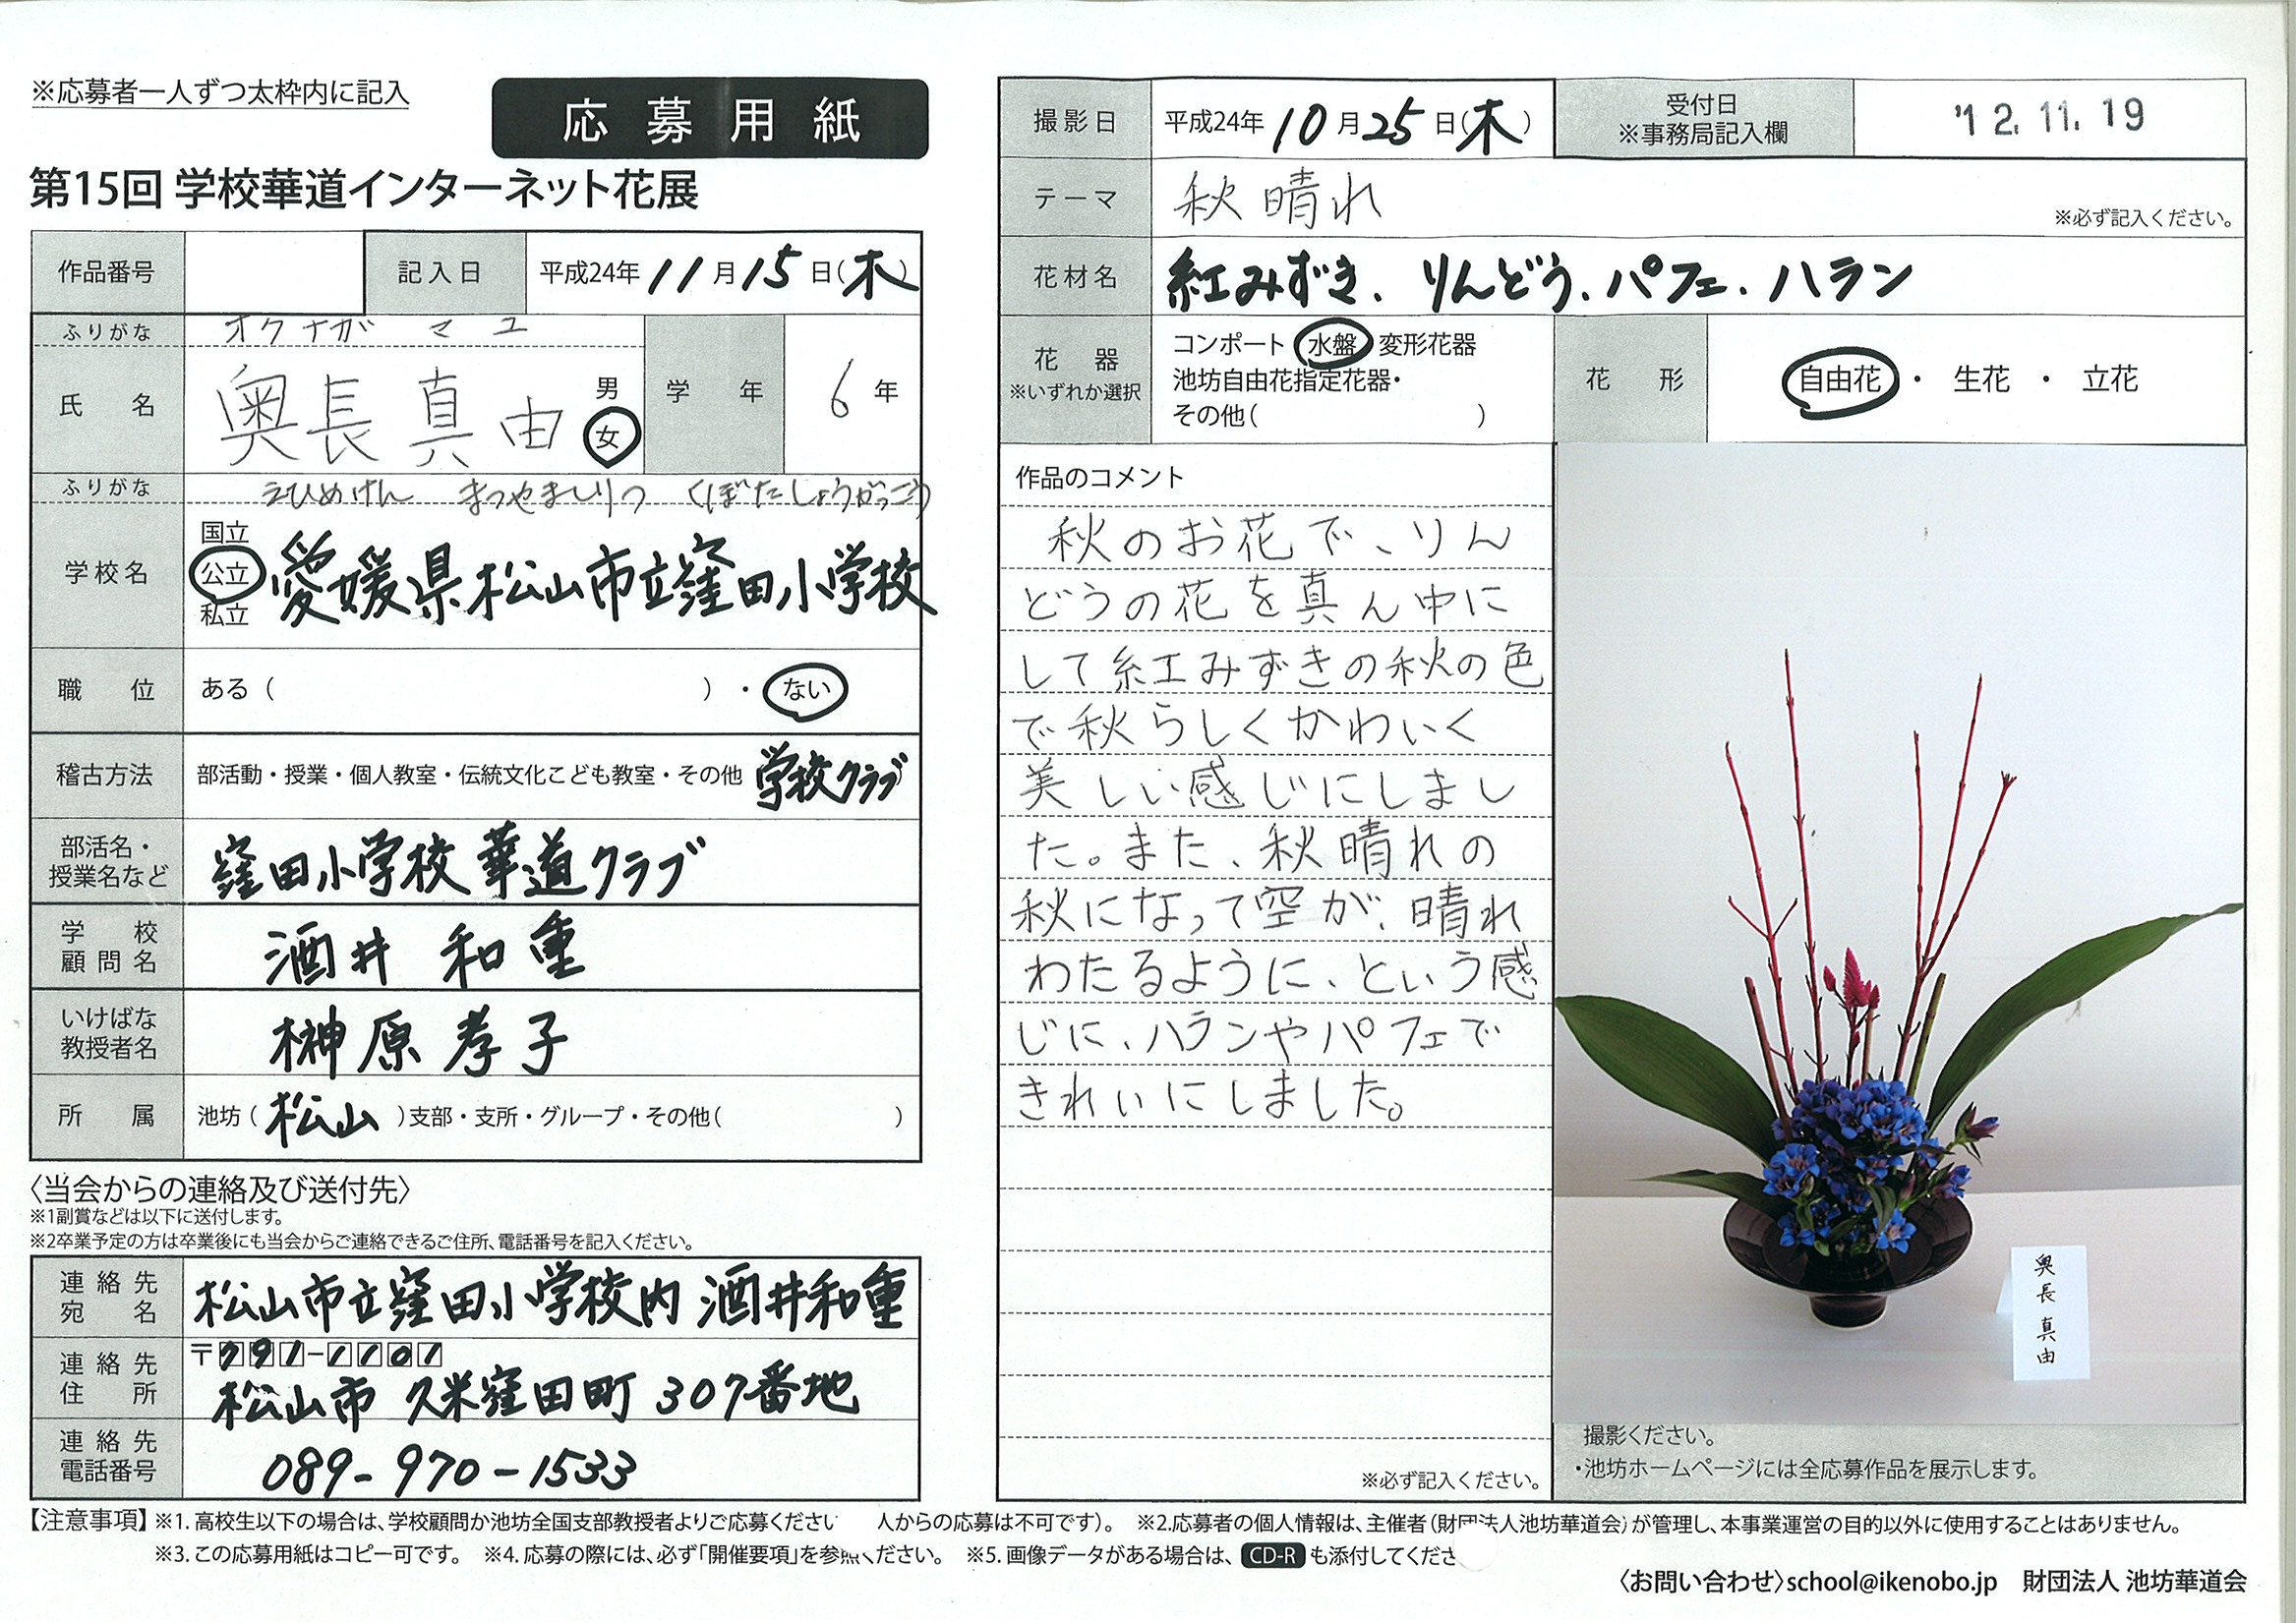 ※応募者一人ずつ太枠内に記入
応募用紙
第15回 学校華道インターネット花展
作品番号
記入日 平成24年11月15日(木)
ふりがな オクナガ マユ
氏名 奥長真由 男 女
学年 6年
ふりがな えひめけん まつやましりつ くぼたしょうがっこう
国立
学校名 公立 愛媛県松山市立窪田小学校
私立
職位 ある( )・ない
稽古方法 部活動・授業・個人教室・伝統文化こども教室・その他 学校クラブ
部活名・
授業名など 窪田小学校華道クラブ
学校
顧問名 酒井 和重
いけばな
教授者名 榊原孝子
所属 池坊(松山)支部・支所・グループ・その他( )
〈当会からの連絡及び送付先〉
※1副賞などは以下に送付します。
※2卒業予定の方は卒業後にも当会からご連絡できるご住所、電話番号を記入ください。
連絡先
宛名 松山市立窪田小学校内 酒井和重
〒791-1101
連絡先
住所 松山市 久米窪田町 307番地
連絡先
電話番号 089-970-1533
撮影日 平成24年10月25日(木)
受付日
※事務局記入欄
'12.11.19
テーマ 秋晴れ
※必ず記入ください。
花材名 紅みずき、りんどう、パフェ、ハラン
花器
※いずれか選択
コンポート 水盤 変形花器
池坊自由花指定花器・
その他( )
花形 自由花・生花・立花
作品のコメント
秋のお花で、りん
どうの花を真ん中に
して紅みずきの秋の色
で秋らしくかわいく
美しい感じにしまし
た。また、秋晴れの
秋になって空が、晴れ
わたるように、という感
じに、ハランやパフェで
きれいにしました。
※必ず記入ください。
奥長真由
撮影ください。
・池坊ホームページには全応募作品を展示します。
【注意事項】※1. 高校生以下の場合は、学校顧問か池坊全国支部教授者よりご応募ください 人からの応募は不可です)。 ※2.応募者の個人情報は、主催者(財団法人池坊華道会)が管理し、本事業運営の目的以外に使用することはありません。
※3. この応募用紙はコピー可です。 ※4. 応募の際には、必ず「開催要項」を参照ください。 ※5. 画像データがある場合は、CD-Rも添付してくださ
〈お問い合わせ〉school@ikenobo.jp 財団法人 池坊華道会